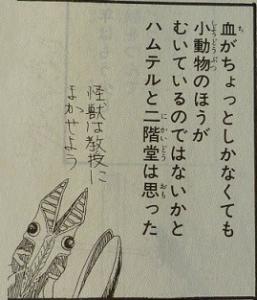 血がちょっとしかなくても
小動物のほうが
むいているのではないかと
ハムテルと二階堂は思った
怪獣は教授に
まかせよう